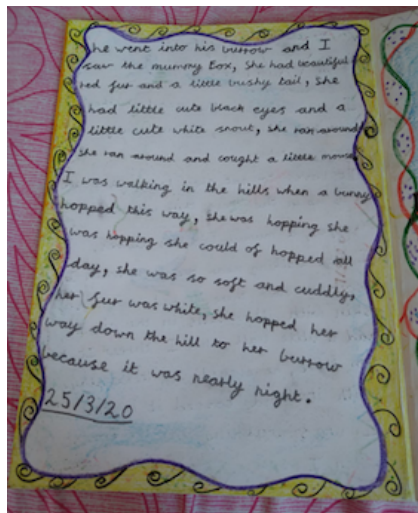 he went into his burrow and I
saw the mummy fox, she had beautiful
red fur and a little bushy tail, she
had little cute black eyes and a
little cute white snout, she ran around
she ran around and cought a little mouse
I was walking in the hills when a bunny
hopped this way, she was hopping she
was hopping she could of hopped all
day, she was so soft and cuddly,
her fur was white, she hopped her
way down the hill to her burrow
because it was nearly night.
25/3/20